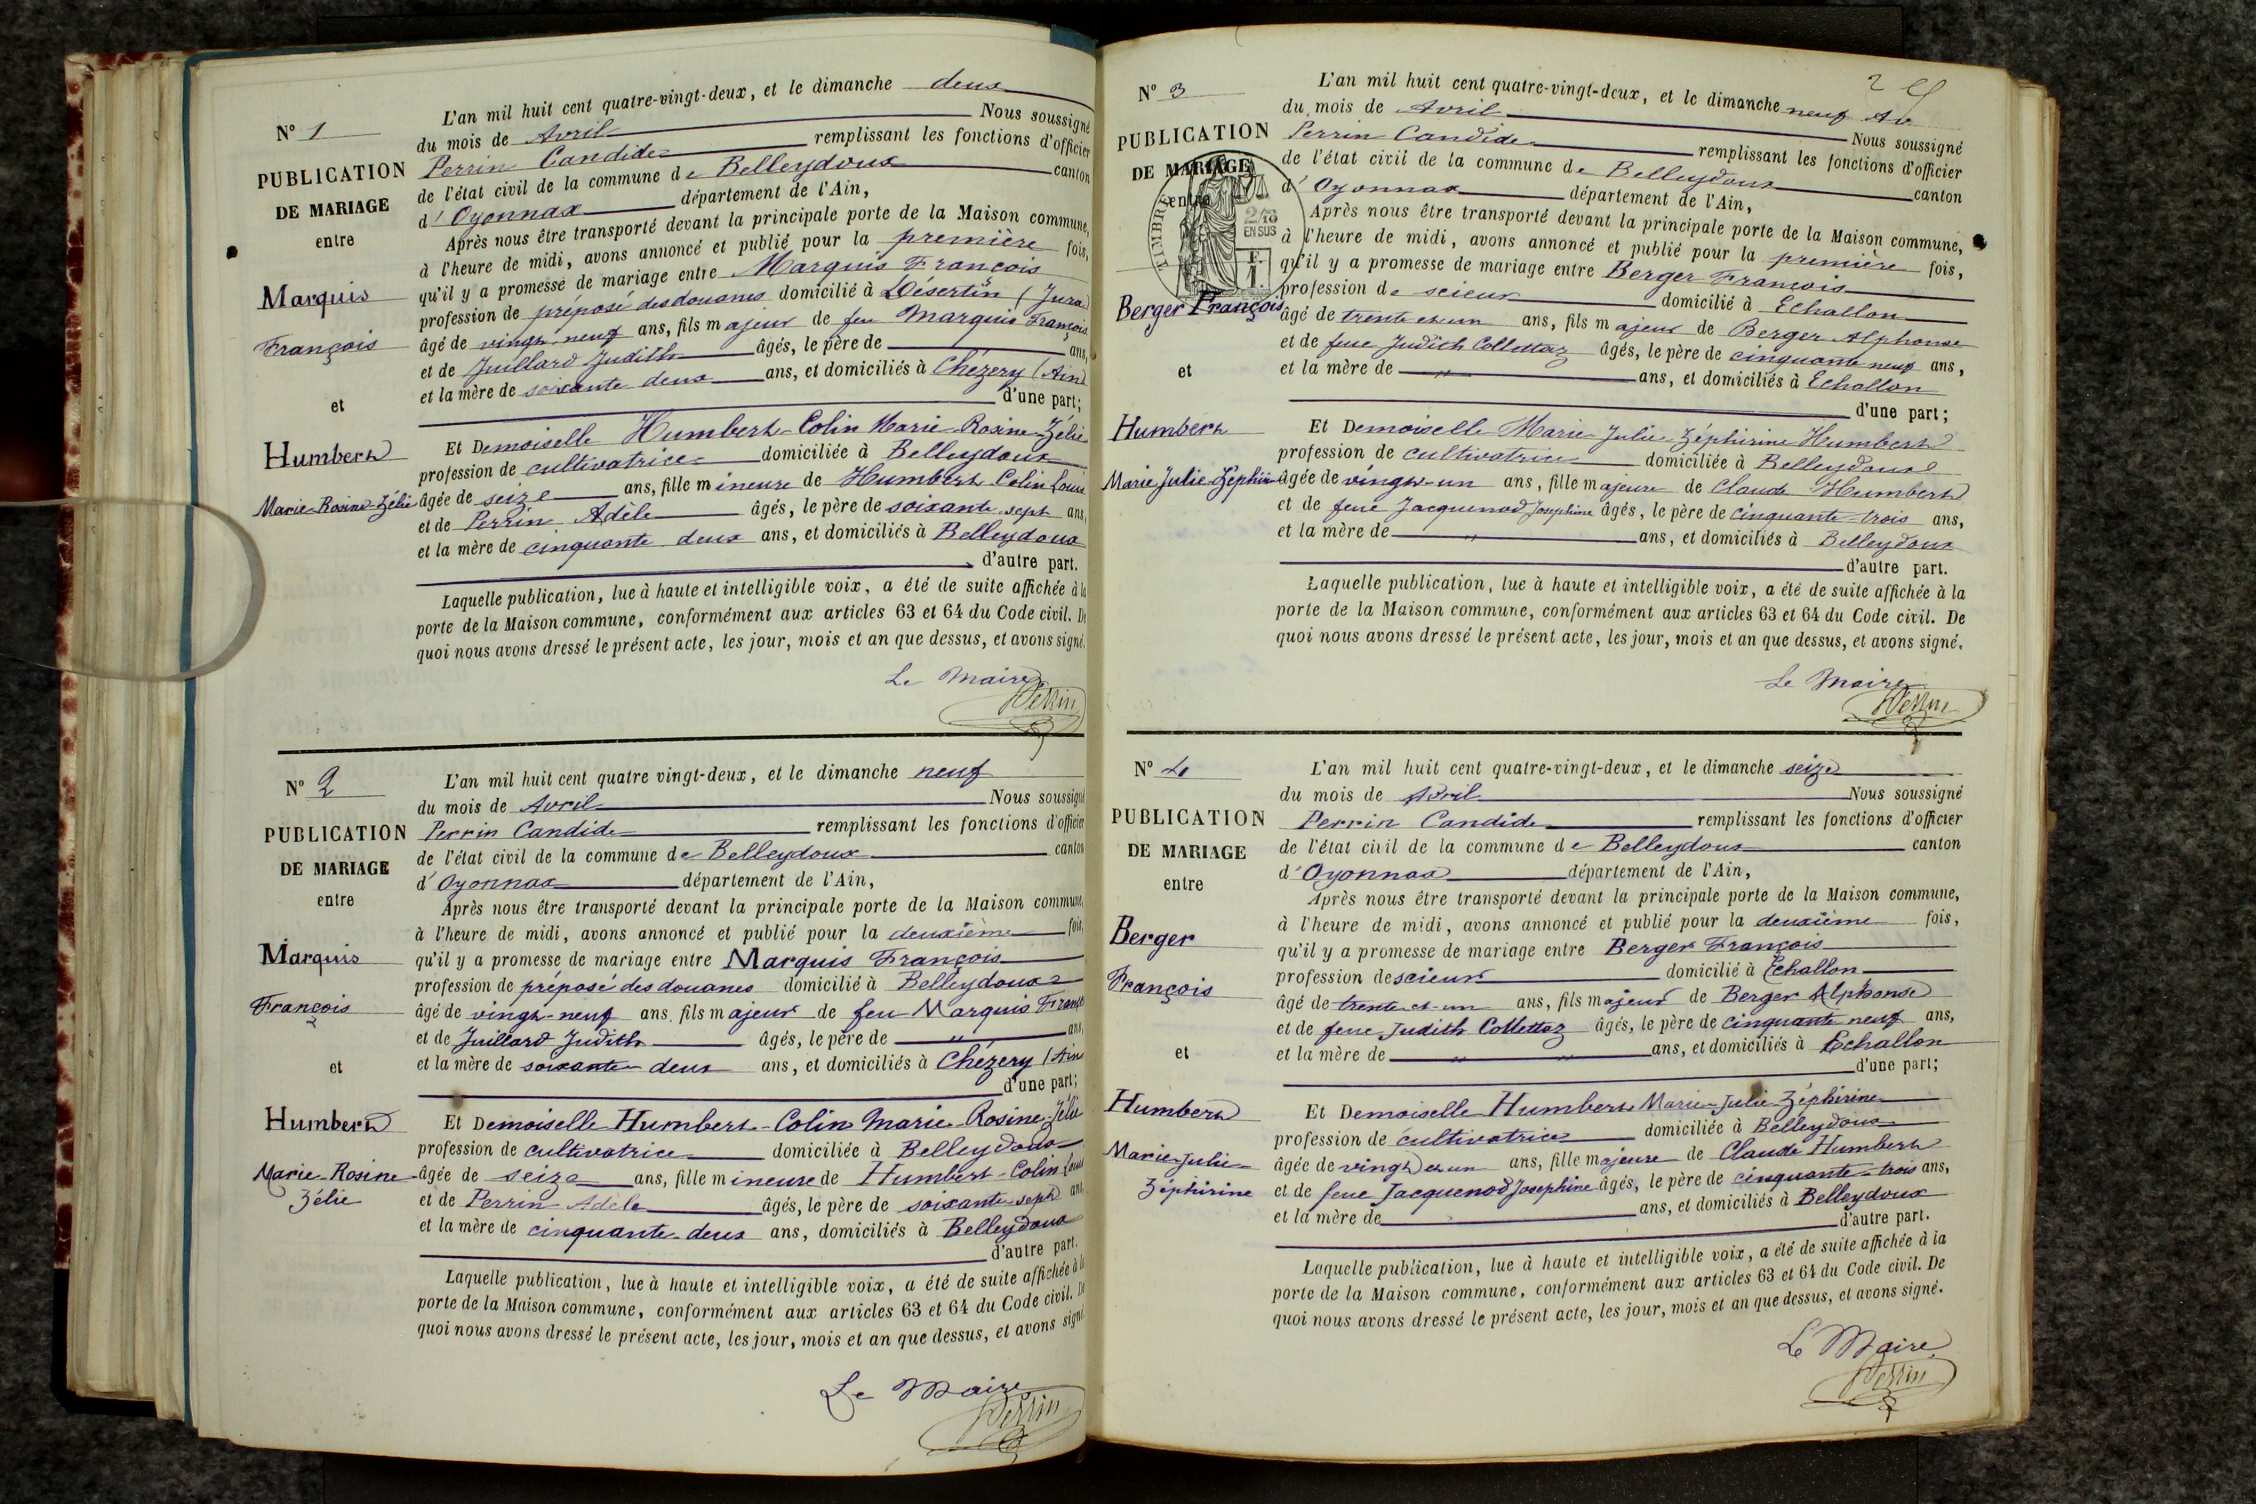 N° 1
PUBLICATION
DE MARIAGE
entre
Marquis
François
et
Humbert
Marie-Rosine-Zélie
L'an mil huit cent quatre-vingt-deux, et le dimanche deux
du mois de Avril Nous soussigné
Perrin Candide remplissant les fonctions d'officier
de l'état civil de la commune de Belleydoux canton
d'Oyonnax département de l'Ain,
Après nous être transporté devant la principale porte de la Maison commune,
à l'heure de midi, avons annoncé et publié pour la première fois,
qu'il y a promesse de mariage entre Marquis François
profession de préposé des douanes domicilié à Désertin (Jura)
âgé de vingt-neuf ans, fils majeur de feu Marquis François
et de Juillard Judith âgés, le père de ans,
et la mère de soixante deux ans, et domiciliés à Chézery (Ain)
d'une part;
Et Demoiselle Humbert-Colin Marie-Rosine-Zélie
profession de cultivatrice domiciliée à Belleydoux
âgée de seize ans, fille mineure de Humbert-Colin Louis
et de Perrin Adèle âgés, le père de soixante-sept ans,
et la mère de cinquante deux ans, et domiciliés à Belleydoux
d'autre part.
Laquelle publication, lue à haute et intelligible voix, a été de suite affichée à la
porte de la Maison commune, conformément aux articles 63 et 64 du Code civil. De
quoi nous avons dressé le présent acte, les jour, mois et an que dessus, et avons signé.
Le Maire
Perrin
N° 2
PUBLICATION
DE MARIAGE
entre
Marquis
François
et
Humbert
Marie-Rosine
Zélie
L'an mil huit cent quatre vingt-deux, et le dimanche neuf
du mois de Avril Nous soussigné
Perrin Candide remplissant les fonctions d'officier
de l'état civil de la commune de Belleydoux canton
d'Oyonnax département de l'Ain,
Après nous être transporté devant la principale porte de la Maison commune,
à l'heure de midi, avons annoncé et publié pour la deuxième fois,
qu'il y a promesse de mariage entre Marquis François
profession de préposé des douanes domicilié à Belleydoux
âgé de vingt-neuf ans, fils majeur de feu Marquis Franco
et de Juillard Judith âgés, le père de " ans,
et la mère de soixante-deux ans, et domiciliés à Chézery (Ain
d'une part;
Et Demoiselle Humbert-Colin Marie-Rosine-Zélie
profession de cultivatrice domiciliée à Belleydoux
âgée de seize ans, fille mineure de Humbert-Colin Louis
et de Perrin Adèle âgés, le père de soixante-sept ans,
et la mère de cinquante-deux ans, domiciliés à Belleydoux
d'autre part.
Laquelle publication, lue à haute et intelligible voix, a été de suite affichée à la
porte de la Maison commune, conformément aux articles 63 et 64 du Code civil. De
quoi nous avons dressé le présent acte, les jour, mois et an que dessus, et avons signé.
Le Maire
Perrin
N° 3
PUBLICATION
DE MARIAGE
entre
TIMBRE
2/10
EN SUS
Berger François
et
Humbert
Marie Julie-Zéphir
L'an mil huit cent quatre-vingt-deux, et le dimanche neuf Av
du mois de Avril Nous soussigné
Perrin Candide remplissant les fonctions d'officier
de l'état civil de la commune de Belleydoux canton
d'Oyonnax département de l'Ain,
Après nous être transporté devant la principale porte de la Maison commune,
à l'heure de midi, avons annoncé et publié pour la première fois,
qu'il y a promesse de mariage entre Berger François
profession de scieur domicilié à Echallon
âgé de trente et un ans, fils majeur de Berger Alphonse
et de feue Judith Collettaz âgés, le père de cinquante neuf ans,
et la mère de " ans, et domiciliés à Echallon
d'une part;
Et Demoiselle Marie-Julie-Zéphirine Humbert
profession de cultivatrice domiciliée à Belleydoux
âgée de vingt-un ans, fille majeure de Claude Humbert
et de feue Jacquenod Josephine âgés, le père de cinquante-trois ans,
et la mère de " ans, et domiciliés à Belleydoux
d'autre part.
Laquelle publication, lue à haute et intelligible voix, a été de suite affichée à la
porte de la Maison commune, conformément aux articles 63 et 64 du Code civil. De
quoi nous avons dressé le présent acte, les jour, mois et an que dessus, et avons signé.
Le Maire
Perrin
N° 4
PUBLICATION
DE MARIAGE
entre
Berger
François
et
Humbert
Marie-Julie
Zéphirine
L'an mil huit cent quatre-vingt-deux, et le dimanche seize
du mois de Avril Nous soussigné
Perrin Candide remplissant les fonctions d'officier
de l'état civil de la commune de Belleydoux canton
d'Oyonnax département de l'Ain,
Après nous être transporté devant la principale porte de la Maison commune,
à l'heure de midi, avons annoncé et publié pour la deuxième fois,
qu'il y a promesse de mariage entre Berger François
profession de scieur domicilié à Echallon
âgé de trente et un ans, fils majeur de Berger Alphonse
et de feue Judith Collettaz âgés, le père de cinquante neuf ans,
et la mère de " " ans, et domiciliés à Echallon
d'une part;
Et Demoiselle Humbert Marie-Julie-Zéphirine
profession de cultivatrice domiciliée à Belleydoux
âgée de vingt et un ans, fille majeure de Claude Humbert
et de feue Jacquenod Josephine âgés, le père de cinquante-trois ans,
et la mère de ans, et domiciliés à Belleydoux
d'autre part.
Laquelle publication, lue à haute et intelligible voix, a été de suite affichée à la
porte de la Maison commune, conformément aux articles 63 et 64 du Code civil. De
quoi nous avons dressé le présent acte, les jour, mois et an que dessus, et avons signé.
Le Maire
Perrin